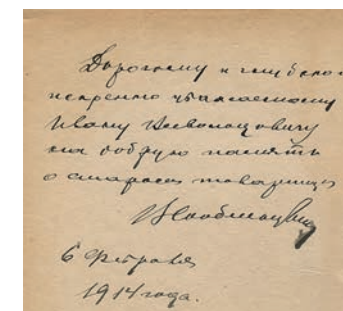 Дорогому и глубоко
искренно уважаемому
Ивану Всеволодовичу
на добрую память
о старом товарище
6 Февраля
1914 года.